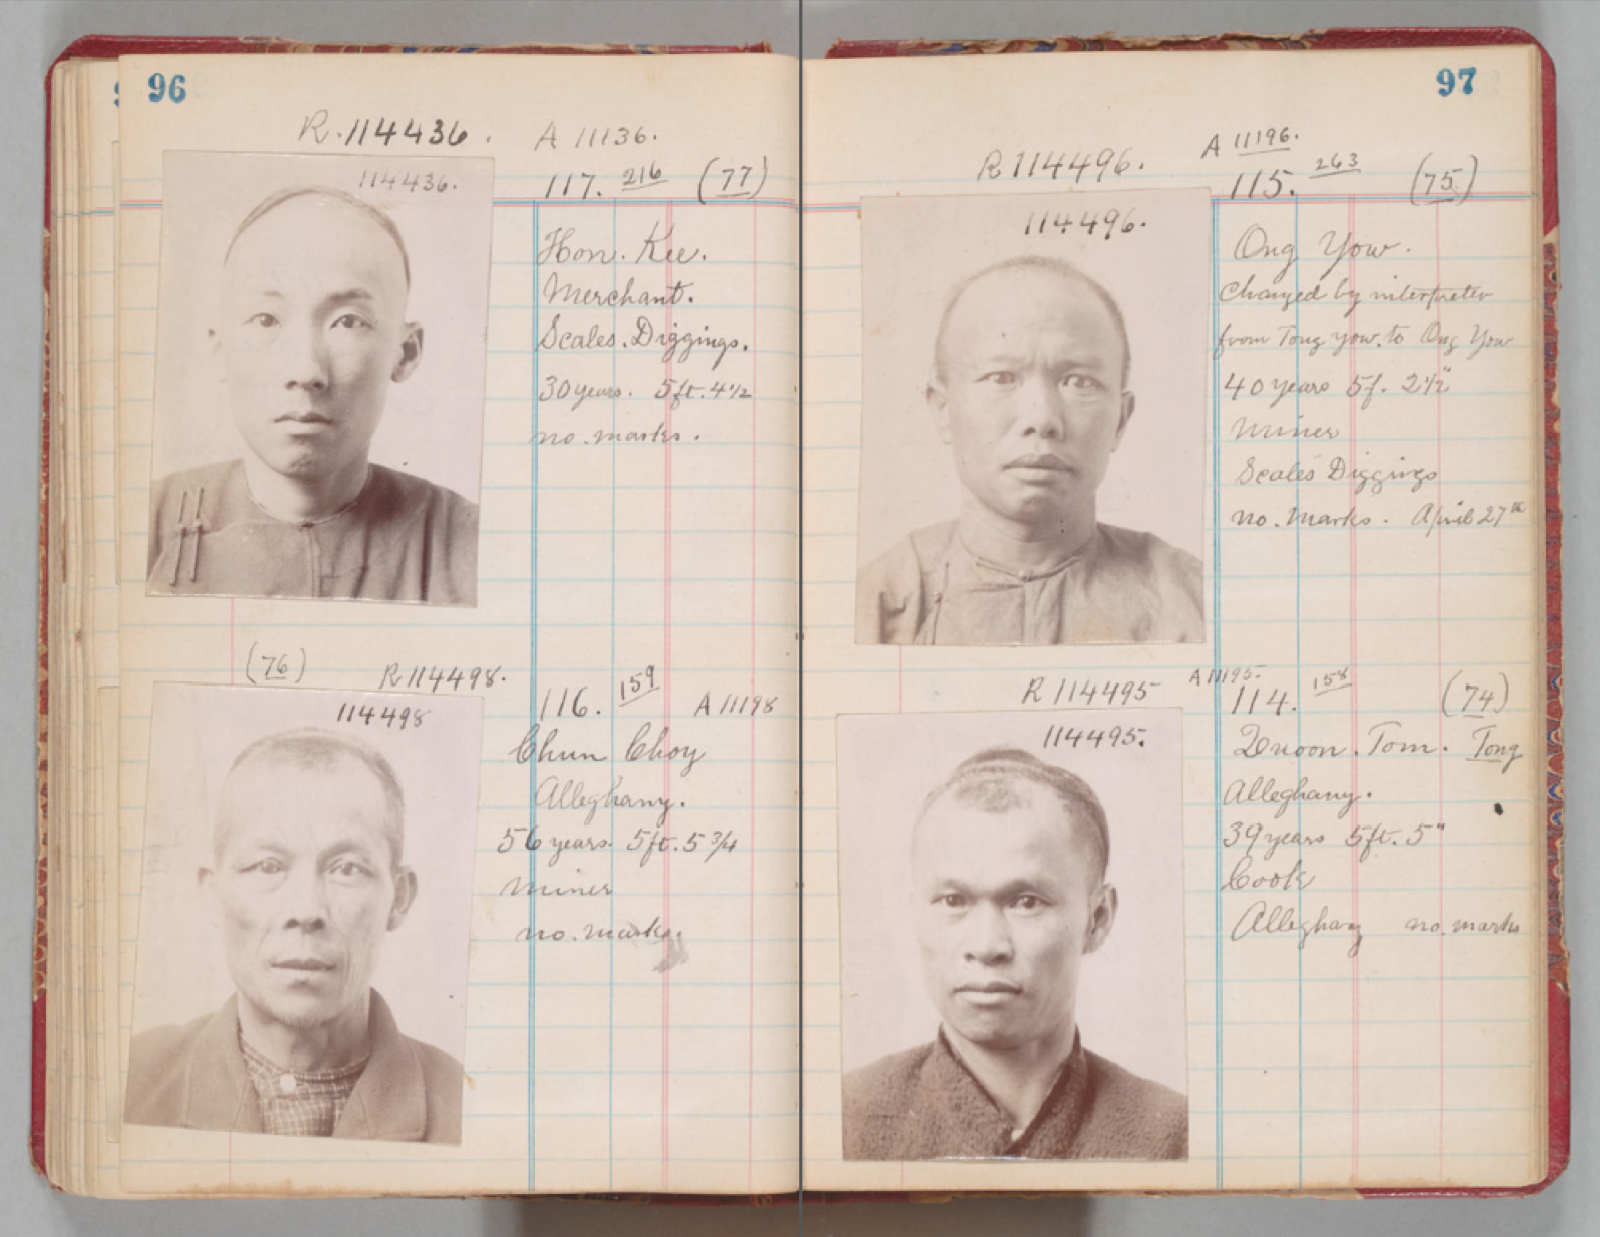 96
R. 114436. A 11136.
114436.
117. 216 (77)
Hon. Kee.
Merchant.
Scales. Diggings.
30 years. 5 ft. 4 1/2
no. marks.
(76) R 114498. 116. 159 A 11198
114498
Chun Choy
Alleghany.
56 years. 5 ft. 5 3/4
miner
no. marks.
97
R 114496. A 11196.
114496.
115. 263 (75)
Ong Yow.
Changed by interpreter
from Tong yow. to Ong Yow
40 years 5 f. 2 1/2"
miner
Scales Diggings
no. marks. April 27th
R 114495 A 11195.
114495.
114. 158 (74)
Quoon. Tom. Tong
Alleghany.
39 years 5 ft. 5"
Cook
Alleghany no. marks